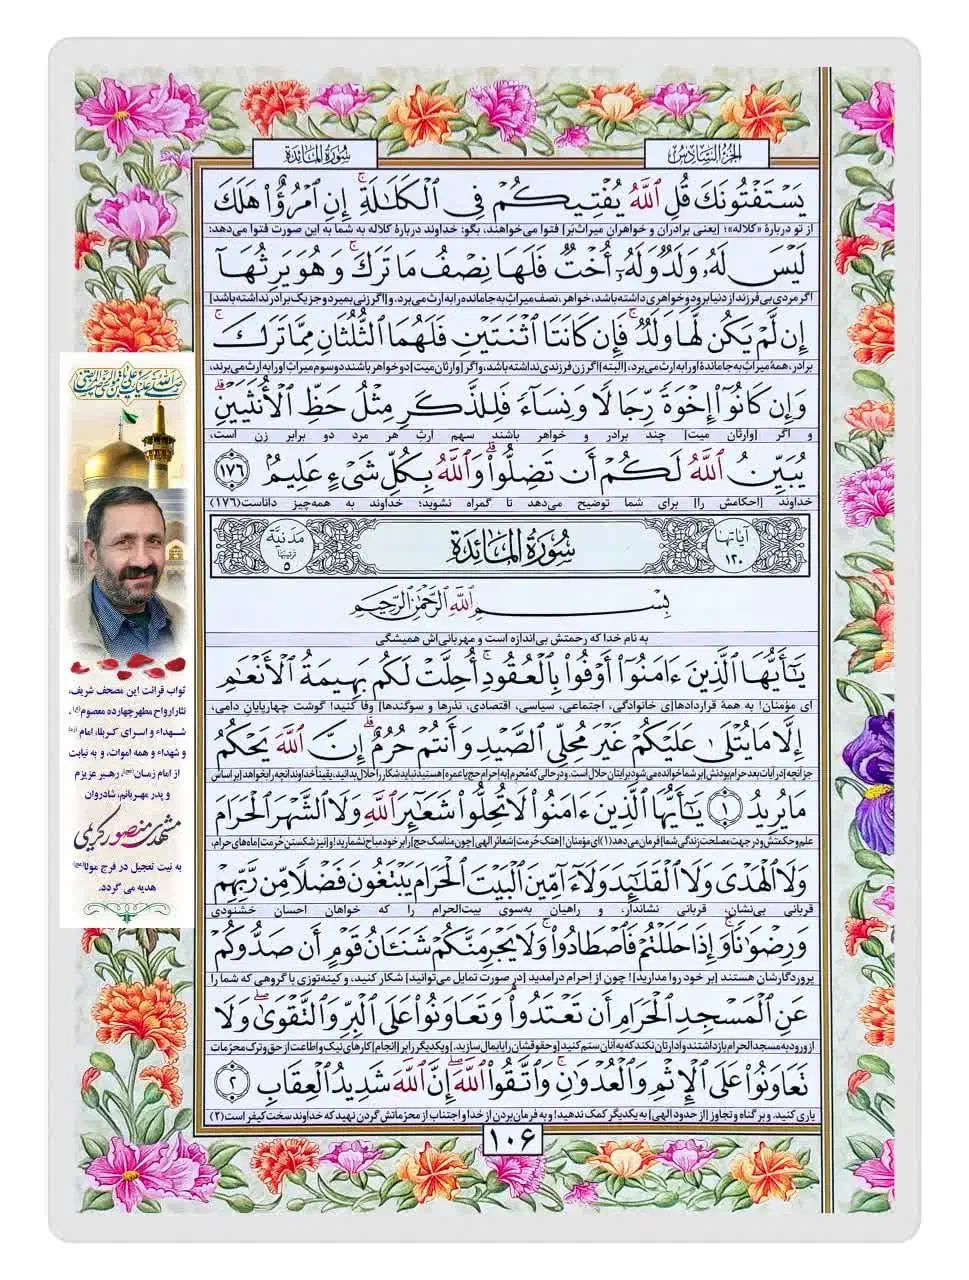 الجزء السادس
سورة المائدة
يَسْتَفْتُونَكَ قُلِ ٱللَّهُ يُفْتِيكُمْ فِى ٱلْكَلَٰلَةِ ۚ إِنِ ٱمْرُؤٌا۟ هَلَكَ
از تو دربارهٔ «کلاله»؛ [یعنی برادران و خواهران میراث‌بَر] فتوا می‌خواهند، بگو: خداوند دربارهٔ کلاله به شما به این صورت فتوا می‌دهد:
لَيْسَ لَهُۥ وَلَدٌ وَلَهُۥٓ أُخْتٌ فَلَهَا نِصْفُ مَا تَرَكَ ۚ وَهُوَ يَرِثُهَآ
اگر مردی بی‌فرزند از دنیا برود و خواهری داشته باشد، خواهر، نصف میراثِ به جا مانده را به ارث می‌برد. و [اگر زنی بمیرد و جز یک برادر نداشته باشد]
إِن لَّمْ يَكُن لَّهَا وَلَدٌ ۚ فَإِن كَانَتَا ٱثْنَتَيْنِ فَلَهُمَا ٱلثُّلُثَانِ مِمَّا تَرَكَ ۚ
برادر، همهٔ میراثِ به جا ماندهٔ او را به ارث می‌برد، [البته] اگر زن فرزندی نداشته باشد، و اگر [وارثان میت] دو خواهر باشند دو سوم میراث او را به ارث می‌برند،
وَإِن كَانُوٓا۟ إِخْوَةً رِّجَالًا وَنِسَآءً فَلِلذَّكَرِ مِثْلُ حَظِّ ٱلْأُنثَيَيْنِ ۗ
و اگر [وارثان میت] چند برادر و خواهر باشند سهم ارثِ هر مرد دو برابر زن است،
يُبَيِّنُ ٱللَّهُ لَكُمْ أَن تَضِلُّوا۟ ۗ وَٱللَّهُ بِكُلِّ شَىْءٍ عَلِيمٌۢ ﴿۱۷۶﴾
خداوند [احکامش را] برای شما توضیح می‌دهد تا گمراه نشوید؛ خداوند به همه‌چیز داناست(۱۷۶)
آیاتها ۱۲۰
سورة المائدة
مدنیّة ترتیبها ۵
بِسْمِ ٱللَّهِ ٱلرَّحْمَٰنِ ٱلرَّحِيمِ
به نام خدا که رحمتش بی‌اندازه است و مهربانی‌اش همیشگی
يَٰٓأَيُّهَا ٱلَّذِينَ ءَامَنُوٓا۟ أَوْفُوا۟ بِٱلْعُقُودِ ۚ أُحِلَّتْ لَكُم بَهِيمَةُ ٱلْأَنْعَٰمِ
ای مؤمنان! به همهٔ قراردادها[ی خانوادگی، اجتماعی، سیاسی، اقتصادی، نذرها و سوگندها] وفا کنید! گوشت چهارپایانِ دامی،
إِلَّا مَا يُتْلَىٰ عَلَيْكُمْ غَيْرَ مُحِلِّى ٱلصَّيْدِ وَأَنتُمْ حُرُمٌ ۗ إِنَّ ٱللَّهَ يَحْكُمُ
جز آنچه [در آیات بعد حرام بودنش] بر شما خوانده می‌شود برایتان حلال است. و در حالی که مُحرِم [به احرام حج یا عمره] هستید نباید شکار را حلال بدانید، یقیناً خداوند آنچه را بخواهد [بر اساس
مَا يُرِيدُ ﴿۱﴾ يَٰٓأَيُّهَا ٱلَّذِينَ ءَامَنُوا۟ لَا تُحِلُّوا۟ شَعَٰٓئِرَ ٱللَّهِ وَلَا ٱلشَّهْرَ ٱلْحَرَامَ
علم و حکمتش و در جهت مصلحت زندگی شما] فرمان می‌دهد(۱) ای مؤمنان! [هتک حرمت] شعائر الهی [چون مناسک حج] را بر خود مباح نشمارید! و [نیز شکستن حرمت] ماه‌های حرام،
وَلَا ٱلْهَدْىَ وَلَا ٱلْقَلَٰٓئِدَ وَلَآ ءَآمِّينَ ٱلْبَيْتَ ٱلْحَرَامَ يَبْتَغُونَ فَضْلًا مِّن رَّبِّهِمْ
قربانی بی‌نشان، قربانی نشاندار، و راهیان به‌سوی بیت‌الحرام را که خواهان احسان خشنودی
وَرِضْوَٰنًا ۚ وَإِذَا حَلَلْتُمْ فَٱصْطَادُوا۟ ۚ وَلَا يَجْرِمَنَّكُمْ شَنَـَٔانُ قَوْمٍ أَن صَدُّوكُمْ
پروردگارشان هستند [بر خود روا مدارید]! چون از اِحرام درآمدید [در صورت تمایل می‌توانید] شکار کنید، و کینه‌توزی با گروهی که شما را
عَنِ ٱلْمَسْجِدِ ٱلْحَرَامِ أَن تَعْتَدُوا۟ ۘ وَتَعَاوَنُوا۟ عَلَى ٱلْبِرِّ وَٱلتَّقْوَىٰ ۖ وَلَا
از ورود به مسجدالحرام بازداشتند وادارتان نکند که به آنان ستم کنید [و حقوقشان را پایمال سازید.] و یکدیگر را بر [انجام] کارهای نیک و اطاعت از حق و ترک محرّمات
تَعَاوَنُوا۟ عَلَى ٱلْإِثْمِ وَٱلْعُدْوَٰنِ ۚ وَٱتَّقُوا۟ ٱللَّهَ ۖ إِنَّ ٱللَّهَ شَدِيدُ ٱلْعِقَابِ ﴿۲﴾
یاری کنید. و بر گناه و تجاوز [از حدود الهی] به یکدیگر کمک ندهید! و به فرمان‌بردن از خدا و اجتناب از محرّماتش گردن نهید که خداوند سخت کیفر است(۲)
۱۰۶
ثواب قرائت این مصحف شریف،
نثار ارواح مطهر چهارده معصوم(ع)،
شهداء و اسرای کربلا، امام(ره)
و شهداء و همه اموات، و به نیابت
از امام زمان(عج)، رهبر عزیزم
و پدر مهربانم، شادروان
مشهدی منصور کریمی
به نیت تعجیل در فرج مولا(عج)
هدیه می گردد.